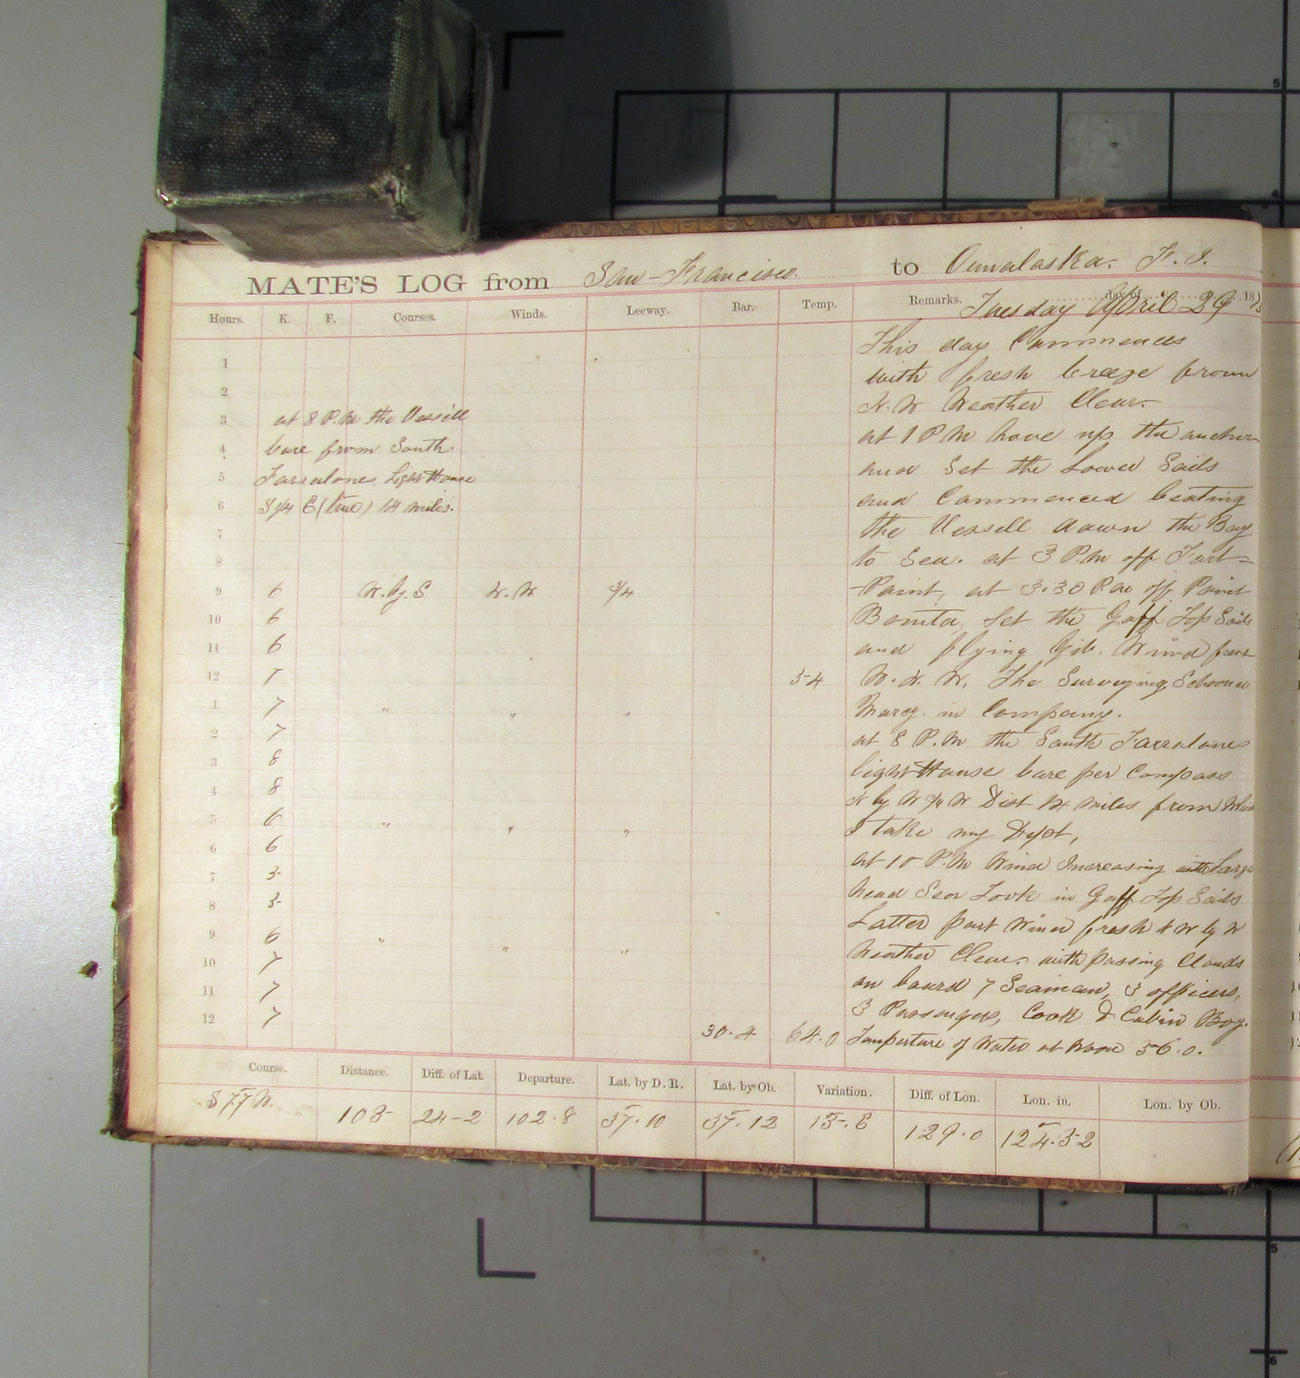 MATE'S LOG from San-Francisco. to Ounalaska. F. I.
Hours. K. F. Courses. Winds. Leeway. Bar. Temp. Remarks. day of 18
Tuesday April 29
1 This day Commences
2 with fresh breeze from
3 at 8 P.M the Vessell N.W Weather Clear-
4 bare from South at 1 P M hove up the anchor
5 Farralones Light House and Set the Lower Sails
6 S 3/4 E (true) 14 miles. and Commenced beating
7 the Vessell dawn the Bay
8 to Sea. at 3 P.M off Fort=
9 6 W. by. S N. W 3/4 -Point, at 3.30 P M off Point
10 6 Bonita, Set the Gaff Top Sails
11 6 and flying Gib. Wind fresh
12 7 54 W. N. W. The Surveying Schooner
1 7 " " " Marcy. in Company.
2 7 at 8 P.M the South Farralones
3 8 Light House bare per Compass
4 8 N by W 3/4 W Dist 14 miles from
5 6 " " " I take my Dept,
6 6 at 10 P.M Wind Increasing with Large
7 5 head Sea Took in Gaff Top Sails
8 5 Latter part Wind fresh N W by W
9 6 " " " Weather Clear- with passing Clouds
10 7 on board 7 Seaman, 3 officers,
11 7 3 Passengers, Cook & Cabin Boy.
12 7 30.4 64.0 Temperture of Water at Noon 56.0.
Course. Distance. Diff. of Lat. Departure. Lat. by D. R. Lat. by Ob. Variation. Diff. of Lon. Lon. in. Lon. by Ob.
S 77 W. 105 24-2 102.8 37.10 37.12 15.8 129.0 124.52
5
4
5
6